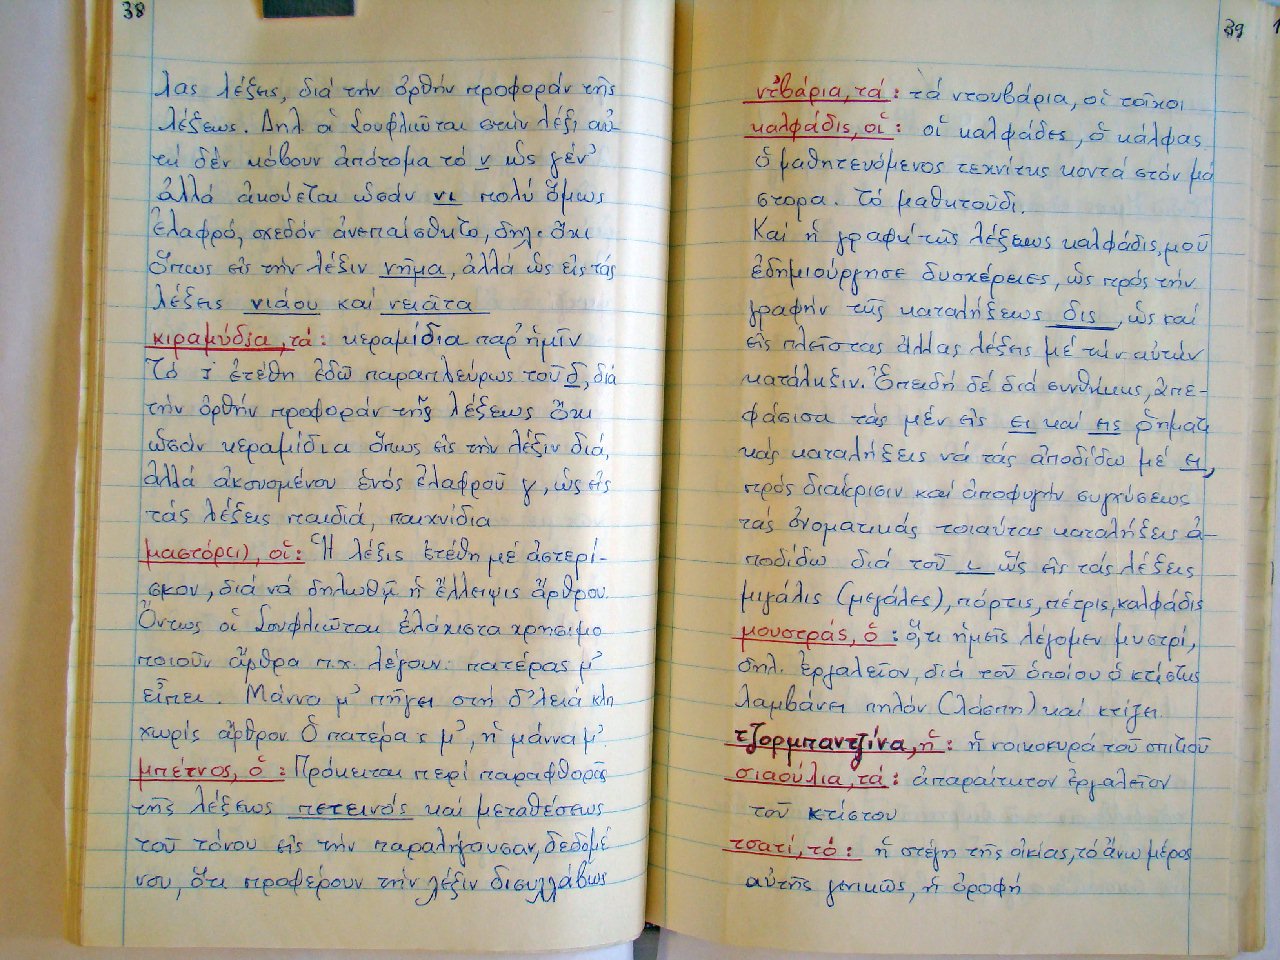 38
λας λέξεις, διά τήν ὀρθήν προφοράν τῆς
λέξεως. Δηλ οἱ Σουφλιῶται στήν λέξι αὐ-
τή δέν κόβουν ἀπότομα τό ν ὡς γέν'
ἀλλά ἀκούεται ὡσάν νι πολύ ὅμως
ἐλαφρό, σχεδόν ἀνεπαίσθητο, δηλ. ὄχι
ὅπως εἰς τήν λέξιν νῆμα, ἀλλά ὡς εἰς τάς
λέξεις νιάου καί νειᾶτα
κιραμύδϳα, τά: κεραμίδια παρ' ἡμῖν
Τό ϳ ἐτέθη ἐδῶ παραπλεύρως τοῦ δ, διά
τήν ὀρθήν προφοράν τῆς λέξεως ὄχι
ὡσάν κεραμίδια ὅπως εἰς τήν λέξιν διά,
ἀλλά ἀκουομένου ἑνός ἐλαφροῦ γ, ὡς εἰς
τάς λέξεις παιδιά, παιχνίδια
μαστόρ(ι), οἱ: Ἡ λέξις ἐτέθη μέ ἀστερί-
σκον, διά νά δηλωθῇ ἡ ἔλλειψις ἄρθρου.
Ὄντως οἱ Σουφλιῶται ἐλάχιστα χρησιμο
ποιοῦν ἄρθρα π.χ. λέγουν: πατέρας μ'
εἶπει. Μάννα μ' πῆγει στή δ'λειά κλπ
χωρίς ἄρθρον Ὁ πατέρας μ', ἡ μάννα μ'.
μπέτνος, ὁ: Πρόκειται περί παραφθορᾶς
τῆς λέξεως πετεινός καί μεταθέσεως
τοῦ τόνου εἰς τήν παραλήγουσαν, δεδομέ
νου, ὅτι προφέρουν τήν λέξιν δισυλλάβως
39
ντβάρια, τά: τά ντουβάρια, οἱ τοῖχοι
καλφάδις, οἱ: οἱ καλφάδες, ὁ κάλφας
ὁ μαθητευόμενος τεχνίτης κοντά στόν μά
στορα. Τό μαθητούδι.
Καί ἡ γραφή τῆς λέξεως καλφάδις, μοῦ
ἐδημιούργησε δυσχέρειες, ὡς πρός τήν
γραφήν τῆς καταλήξεως δις, ὡς καί
εἰς πλεῖστας ἄλλας λέξεις μέ τήν αὐτήν
κατάληξιν. Ἐπειδή δέ διά συνθήκης, ἀπε-
φάσισα τάς μέν εἰς ει καί εις ρηματι
κάς καταλήξεις νά τάς ἀποδίδω μέ ει,
πρός διάκρισιν καί ἀποφυγήν συγχύσεως
τάς ὀνοματικάς τοιαύτας καταλήξεις ἀ-
ποδίδω διά τοῦ ι ὡς εἰς τάς λέξεις
μιγάλις (μεγάλες), πόρτις, πέτρις, καλφάδις
μουστράς, ὁ: ὅ,τι ἡμεῖς λέγομεν μυστρί,
δηλ. ἐργαλεῖον, διά τοῦ ὁποίου ὁ κτίστης
λαμβάνει πηλόν (λάσπη) καί κτίζει.
τζορμπαντζίνα, ἡ: ἡ νοικοκυρά τοῦ σπιτιοῦ
σιαούλια, τά: ἀπαραίτητον ἐργαλεῖον
τοῦ κτίστου
τσατί, τό: ἡ στέγη τῆς οἰκίας, τό ἄνω μέρος
αὐτῆς γενικῶς, ἡ ὀροφή